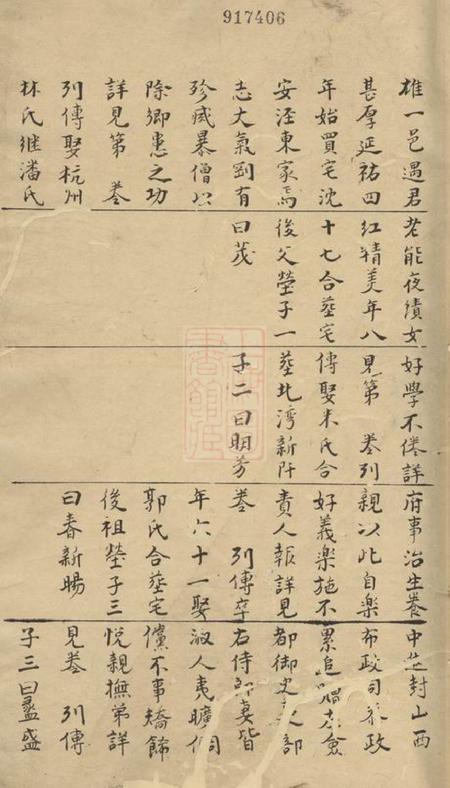 917406
雄一邑遇君
甚厚延祐四
年始買宅沈
安涇東家焉
志大氣剛有
殄滅暴僧以
除鄉患之功
詳見第 卷
列傳娶杭州
林氏继潘氏
老能夜績女
红精美年八
十七合塟宅
後父塋子一
曰茂
好學不倦詳
見第 卷列
傳娶朱氏合
塟北湾新阡
子二曰明芳
府事治生養
親以此自樂
好義樂施不
責人報詳見
卷 列傳卒
年六十一娶
郭氏合塟宅
後祖塋子三
曰春新暘
中封山西
布政司叅政
累追贈右僉
都御史吏部
右侍郎妻皆
淑人夷曠倜
儻不事矯飾
悅親撫弟詳
見卷 列傳
子三曰盛